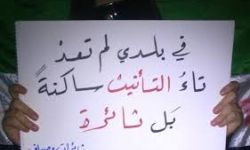 في بلدي لم تعد
تاءُ التأنيث ساكنةً
بَل ثائرة